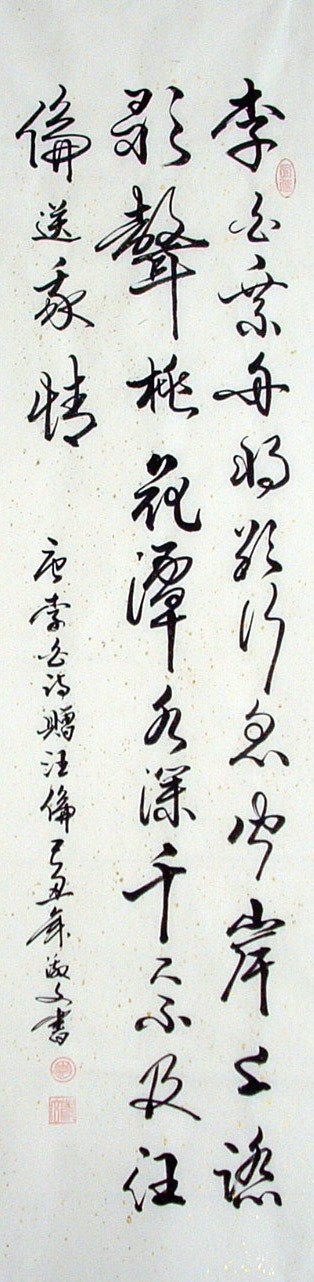 李白乘舟將欲行忽聞岸上踏
歌聲桃花潭水深千尺不及汪
倫送我情
唐李白詩贈汪倫己丑年文書